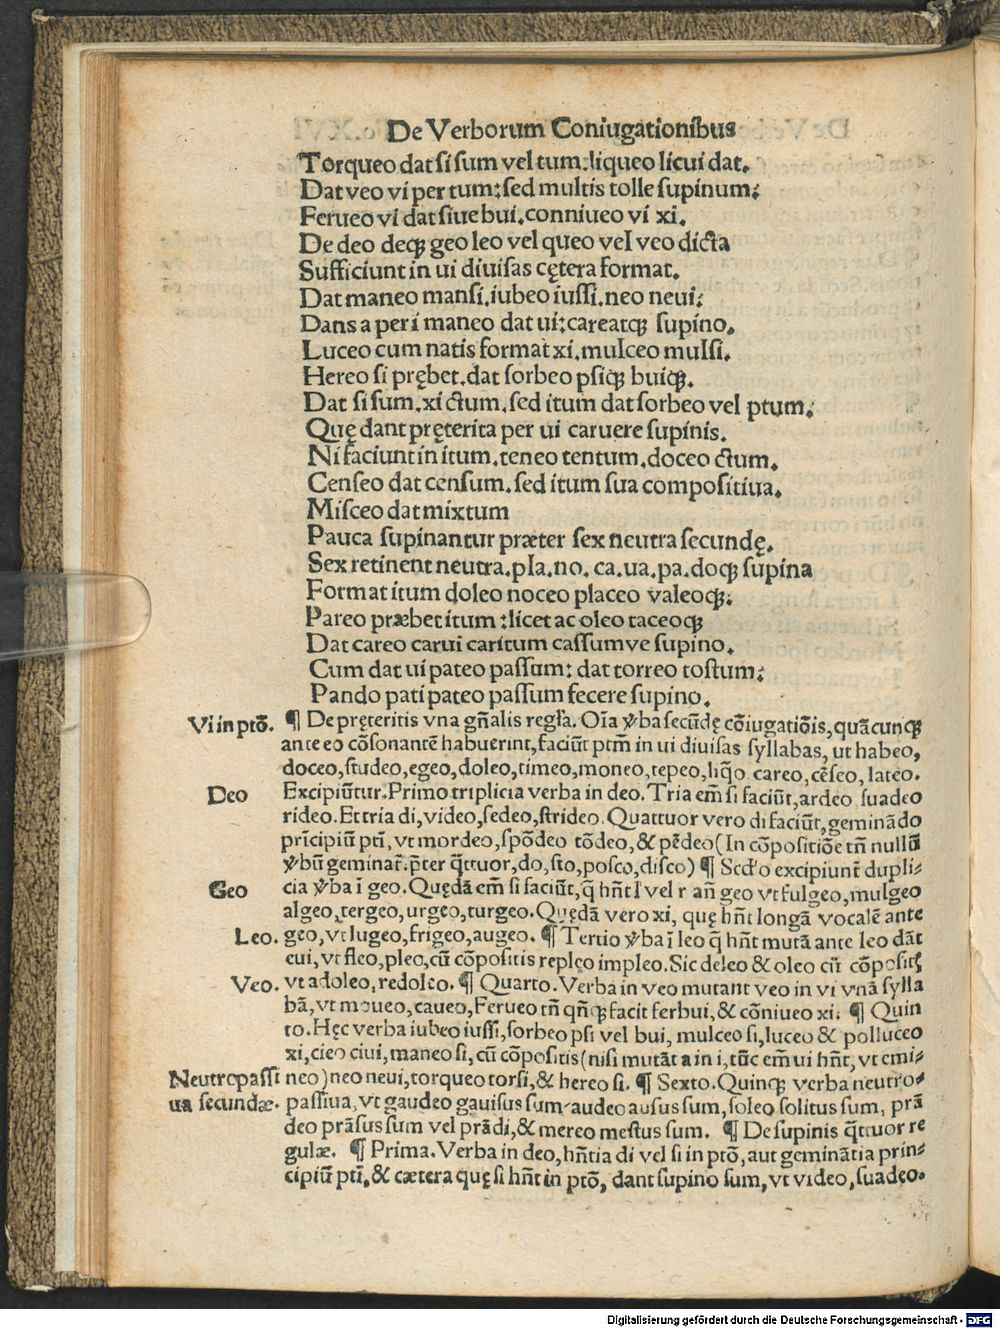 De Verborum Coniugationibus
Torqueo dat si sum vel tum: liqueo licui dat.
Dat veo vi per tum: sed multis tolle supinum:
Ferueo vi dat siue bui. conniueo vi xi.
De deo deqꝫ geo leo vel queo vel veo dicta
Sufficiunt in ui diuisas cętera format.
Dat maneo mansi. iubeo iussi. neo neui:
Dans a per i maneo dat ui: careatqꝫ supino.
Luceo cum natis format xi. mulceo mulsi.
Hereo si prębet. dat sorbeo psiqꝫ buiqꝫ.
Dat si sum. xi ctum. sed itum dat sorbeo vel ptum:
Quę dant pręterita per ui caruere supinis.
Ni faciunt in itum. teneo tentum. doceo ctum.
Censeo dat censum. sed itum sua compositiua.
Misceo dat mixtum
Pauca supinantur præter sex neutra secundę.
Sex retinent neutra. pla. no. ca. ua. pa. doqꝫ supina
Format itum doleo noceo placeo valeoqꝫ:
Pareo præbet itum: licet ac oleo taceoqꝫ
Dat careo carui caritum cassumve supino.
Cum dat ui pateo passum: dat torreo tostum:
Pando pati pateo passum fecere supino.
Vi in ptõ. ¶ De pręteritis vna gñalis regła. Oĩa ꝟba secũdę cõiugatiõis, quãcunqꝫ
ante eo cõsonantẽ habuerint, faciũt ptm̃ in ui diuisas syllabas, ut habeo,
doceo, studeo, egeo, doleo, timeo, moneo, tepeo, liq̃o careo, cẽseo, lateo.
Deo Excipiũtur. Primo triplicia verba in deo. Tria em̃ si faciũt, ardeo suadeo
rideo. Et tria di, video, sedeo, strideo. Quattuor vero di faciũt, geminãdo
prĩcipiũ pti, vt mordeo, spõdeo tõdeo, & pẽdeo (In cõpositiõe tñ nullũ
ꝟbũ geminat̃. pręter q̃ttuor, do, sto, posco, disco) ¶ Scd̃o excipiunt̃ dupli-
Geo cia ꝟba ĩ geo. Quędã em̃ si faciũt, q̃ hñt l vel r añ geo vt fulgeo, mulgeo
algeo, tergeo, urgeo, turgeo. Quędã vero xi, quę hñt longã vocalẽ ante
Leo. geo, vt lugeo, frigeo, augeo. ¶ Tertio ꝟba ĩ leo q̃ hñt mutã ante leo dãt
eui, vt fleo, pleo, cũ cõpositis repleo impleo. Sic deleo & oleo cũ cõpositꝭ
Veo. vt adoleo, redoleo. ¶ Quarto. Verba in veo mutant veo in vi vnã sylla
bã, vt moueo, caueo, Ferueo tñ qñqꝫ facit ferbui, & cõniueo xi. ¶ Quin
to. Hęc verba iubeo iussi, sorbeo psi vel bui, mulceo si, luceo & polluceo
xi, cieo ciui, maneo si, cũ cõpositis (nisi mutãt a in i, tũc em̃ ui hñt, vt emi-
Neutropassi neo) neo neui, torqueo torsi, & hereo si. ¶ Sexto. Quinqꝫ verba neutro-
ua secundæ. passiua, vt gaudeo gauisus sum audeo ausus sum, soleo solitus sum, prã
deo prãsus sum vel prãdi, & mereo mestus sum. ¶ De supinis q̃ttuor re
gulæ. ¶ Prima. Verba in deo, hñtia di vel si in ptõ, aut geminãtia prin-
cipiũ pti, & cætera quę si hñt in ptõ, dant supino sum, vt video, suadeo.
Digitalisierung gefördert durch die Deutsche Forschungsgemeinschaft - DFG